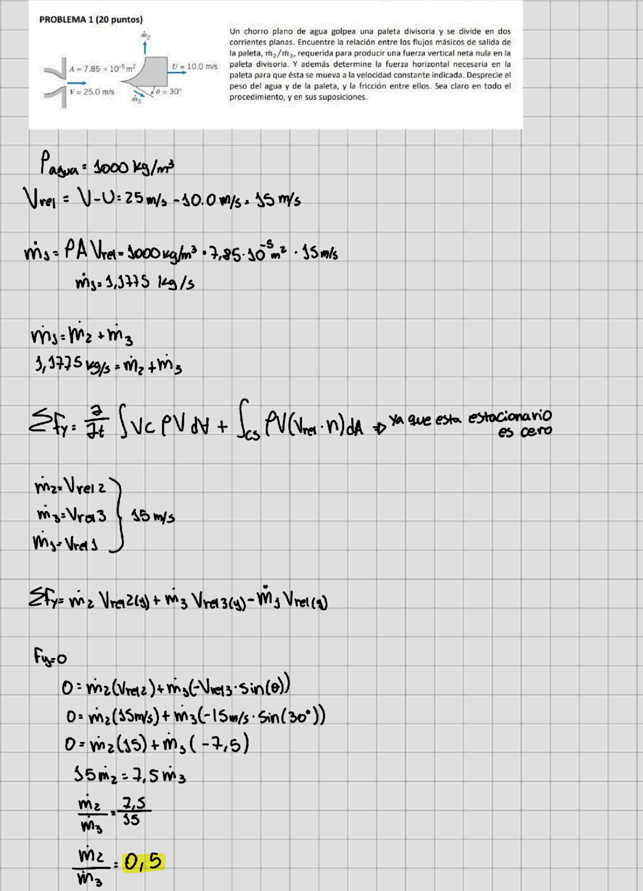 PROBLEMA 1 (20 puntos)
Un chorro plano de agua golpea una paleta divisoria y se divide en dos
corrientes planas. Encuentre la relación entre los flujos másicos de salida de
la paleta, ṁ₂/ṁ₃, requerida para producir una fuerza vertical neta nula en la
paleta divisoria. Y además determine la fuerza horizontal necesaria en la
paleta para que ésta se mueva a la velocidad constante indicada. Desprecie el
peso del agua y de la paleta, y la fricción entre ellos. Sea claro en todo el
procedimiento, y en sus suposiciones.
ṁ₂
A = 7.85 × 10⁻⁵ m²
U = 10.0 m/s
V = 25.0 m/s
ṁ₃
θ = 30°
ρagua = 1000 kg/m³
Vrel = V-U = 25 m/s - 10.0 m/s = 15 m/s
ṁ1 = ρAVrel = 1000 kg/m³ · 7,85·10⁻⁵ m² · 15 m/s
ṁ1 = 1,1775 kg/s
ṁ1 = ṁ2 + ṁ3
1,1775 kg/s = ṁ2 + ṁ3
ΣFy = ∂/∂t ∫VC ρV dV + ∫cs ρV(Vrel·n)dA ⇒ Ya que esta estacionario
es cero
ṁ2 = Vrel2
ṁ3 = Vrel3 } 15 m/s
ṁ1 = Vrel1
ΣFy = ṁ2 Vrel2(y) + ṁ3 Vrel3(y) - ṁ1 Vrel(y)
Fy=0
0 = ṁ2(Vrel2) + ṁ3(-Vrel3·sin(θ))
0 = ṁ2(15m/s) + ṁ3(-15m/s·sin(30°))
0 = ṁ2(15) + ṁ3(-7,5)
15ṁ2 = 7,5ṁ3
ṁ2/ṁ3 = 7,5/15
ṁ2/ṁ3 = 0,5